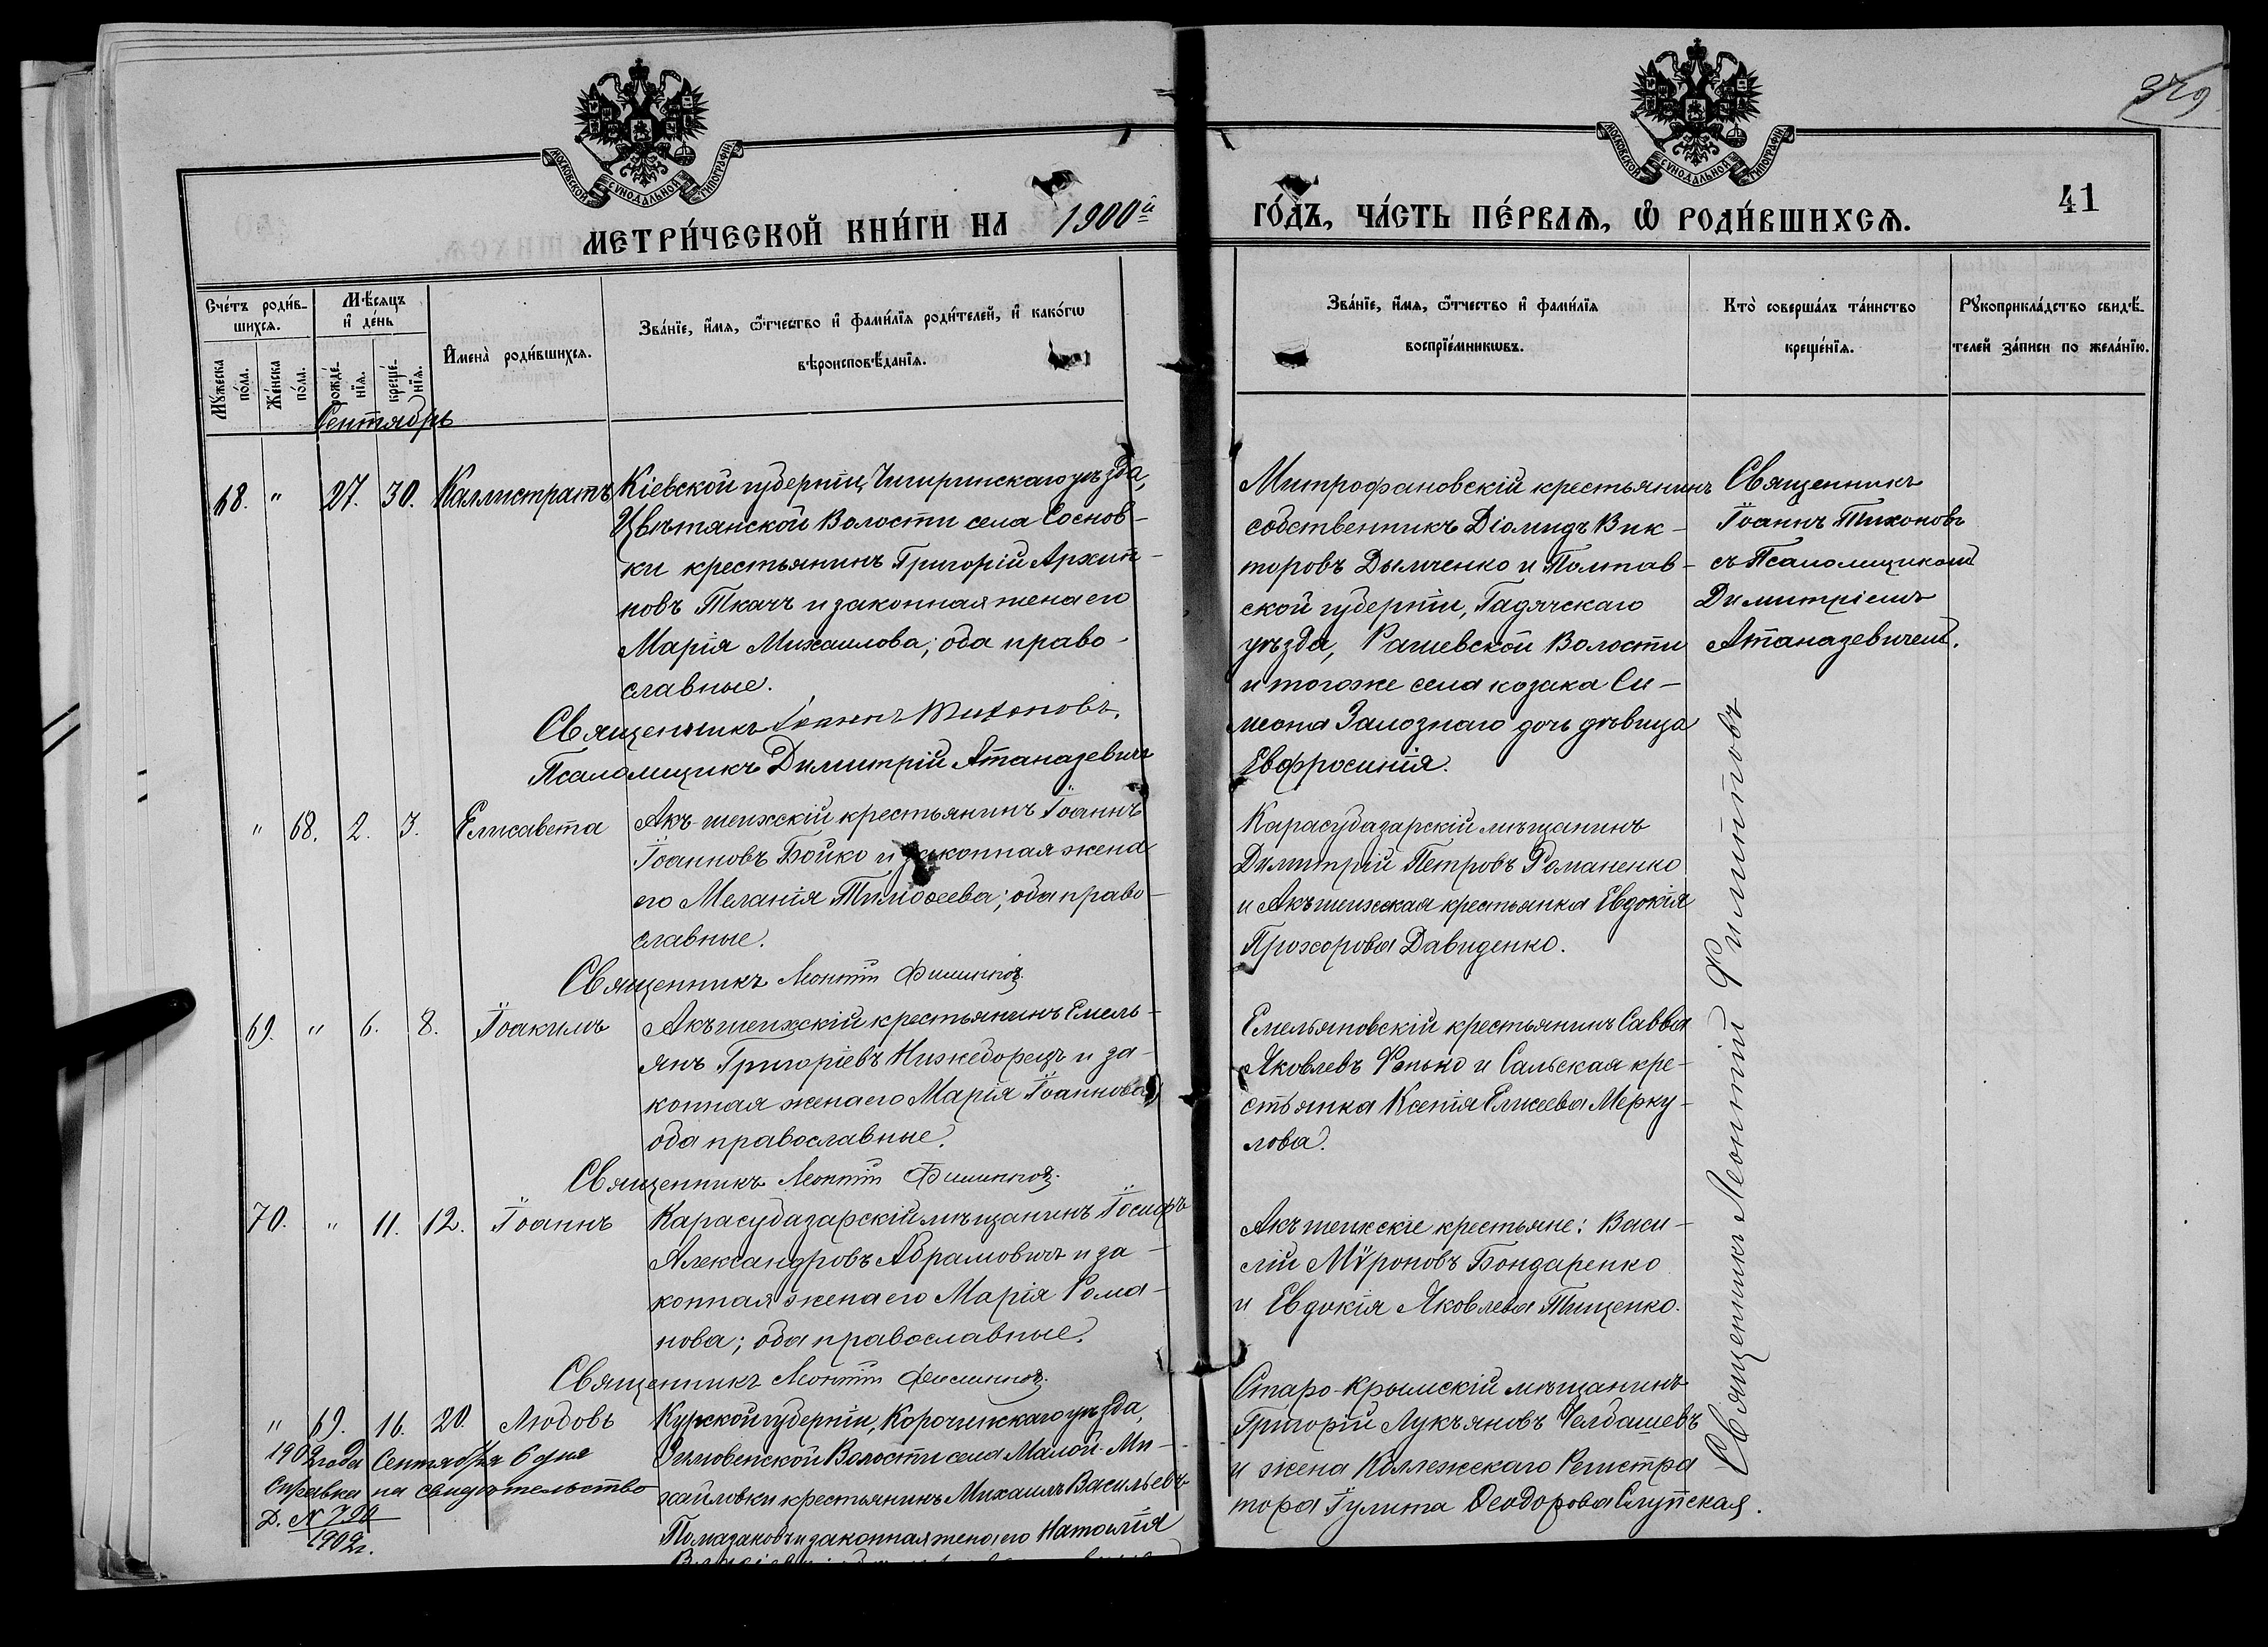 329
МОСКОВСКОЙ СУНОДАЛЬНОЙ ТИПОГРАФІИ
МОСКОВСКОЙ СУНОДАЛЬНОЙ ТИПОГРАФІИ
МЕТРИ́ЧЕСКОЙ КНИ́ГИ НА 1900й
ГО́ДЪ, ЧА́СТЬ ПЕ́РВАЯ, Ѿ РОДИ́ВШИХСЯ.
41
Сче́тъ роди́вшихся.
Му́жеска по́ла.
Же́нска по́ла.
Мѣ́сяцъ и де́нь
рожде́нїя.
креще́нїя.
Имена̀ роди́вшихся.
Зва́нїе, и́мя, ѻ́тчество и фами́лїя роди́телей, и како́гѡ
вѣроисповѣ́данїя.
Зва́нїе, и́мя, ѻ́тчество и фами́лїя
воспрїе́мникѡвъ.
Кто̀ соверша́лъ та́инство
креще́нїя.
Рꙋкоприкла́дство свидѣ́-
телей за́писи по жела́нїю.
Сентябрь
68. " 27. 30. Каллистратъ
Кіевской губерніи, Чигиринскаго уѣзда,
Цвѣтянской Волости села Соснов-
ки крестьянинъ Григорій Архип-
повъ Ткачъ и законная жена его
Марія Михаилова; оба право-
славные.
Священникъ Іоаннъ Тихоновъ.
Псаломщикъ Димитрій Атаназевичъ
Митрофановскій крестьянинъ
собственникъ Діомидъ Вик-
торовъ Дымченко и Полтав-
ской губерніи, Гадячскаго
уѣзда, Рашевской Волости
и тогоже села козака Си-
меона Залознаго дочь дѣвица
Евфросинія.
Священникъ
Іоаннъ Тихоновъ
съ Псаломщикомъ
Димитріемъ
Атаназевичемъ.
" 68. 2. 3. Елисавета
Акъ-шеихскій крестьянинъ Іоаннъ
Іоанновъ Бойко и законная жена
его Меланія Тимоѳеева; оба право-
славные.
Священникъ Леонтій Филипповъ
Карасубазарскій мѣщанинъ
Димитрій Петровъ Романенко
и Акъшеихская крестьянка Евдокія
Прохорова Давиденко.
69. " 6. 8. Іоакимъ
Акъшеихскій крестьянинъ Емель-
янъ Григоріевъ Нижеборецъ и за-
конная жена его Марія Іоаннова;
оба православные.
Священникъ Леонтій Филипповъ.
Емельяновскій крестьянинъ Савва
Яковлевъ Репько и Сальская кре-
стьянка Ксенія Елисеева Мерку-
лова.
70. " 11. 12. Іоаннъ
Карасубазарскій мѣщанинъ Іосифъ
Александровъ Абрамовичъ и за-
конная жена его Марія Рома-
нова; оба православные.
Священникъ Леонтій Филипповъ.
Акъшеихскіе крестьяне: Васи-
лій Мѵроновъ Бондаренко
и Евдокія Яковлева Тищенко.
" 69. 16. 20. Любовь
Курской губерніи, Корочинскаго уѣзда,
Зимовенской Волости села Малой-Ми-
хайловки крестьянинъ Михаилъ Васильевъ
Помазановъ и законная жена его Наталія
Старо-Крымскій мѣщанинъ
Григорій Лукъяновъ Челбашевъ
и жена Коллежскаго Регистра
тора Іулита Ѳеодорова Слупская.
1902 года Сентября 6 дня
Справка на свидѣтельство
Д. № 790
1902г.
Священникъ Леонтій Филипповъ